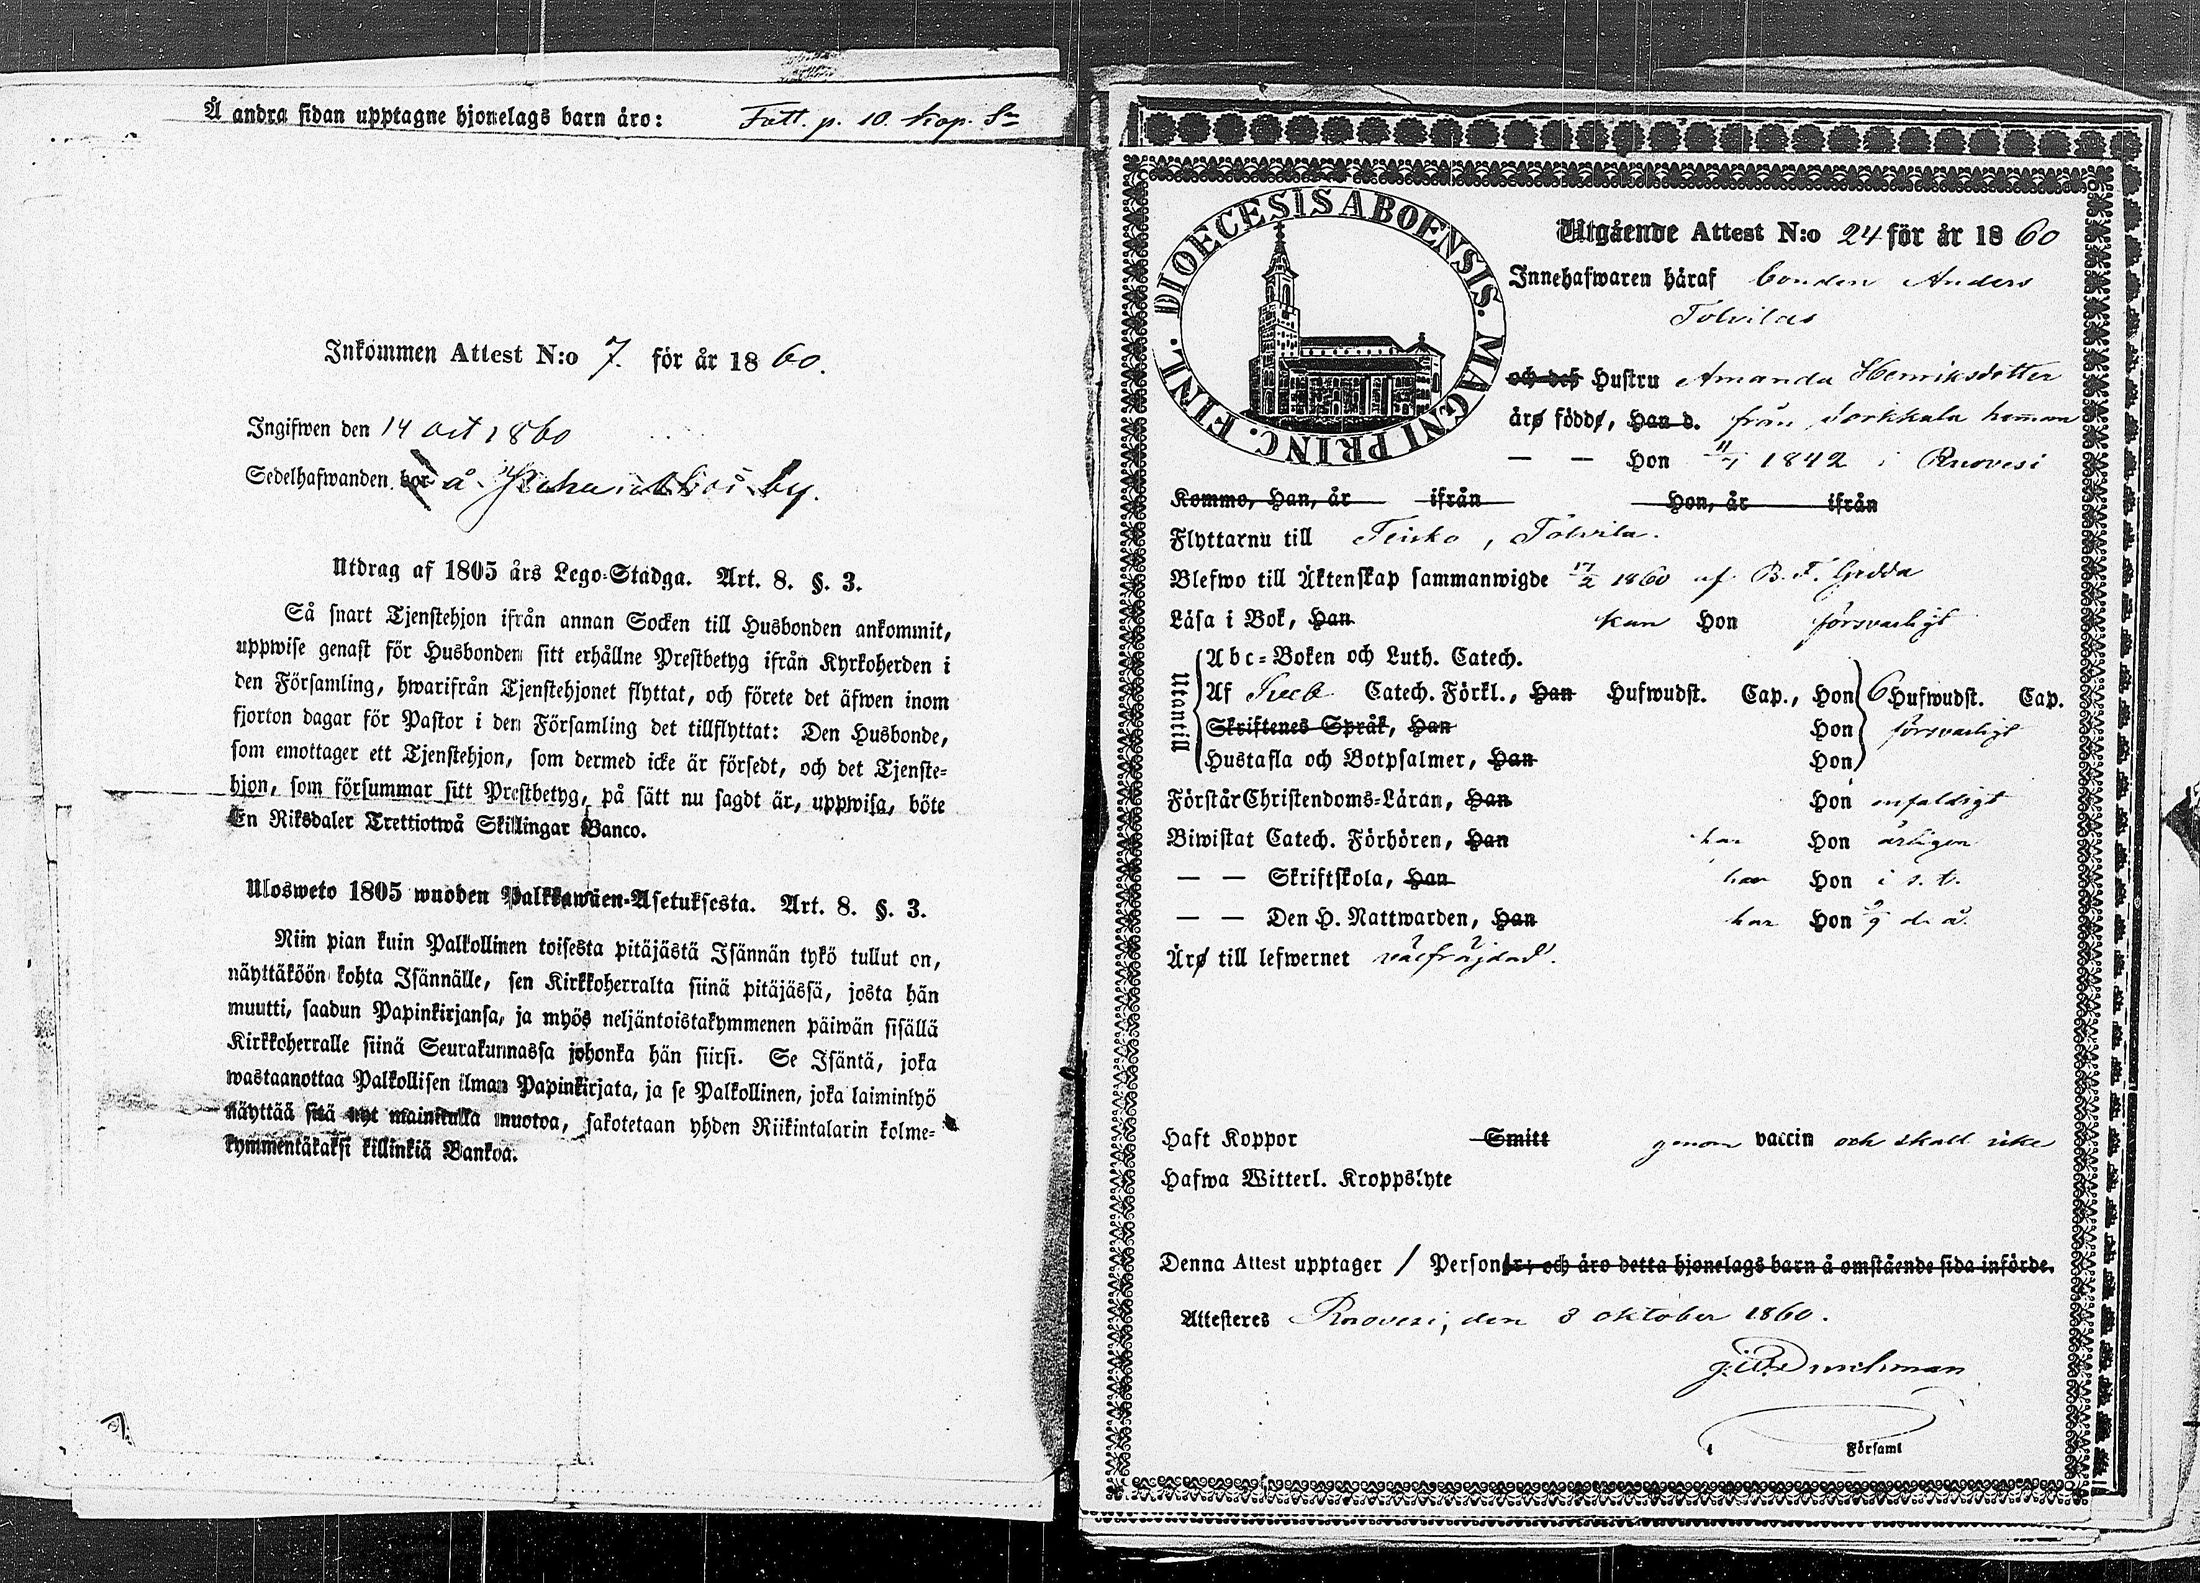 Å andra sidan upptagne hjonelags barn äro: Fatt. p. 10. kop. Sr
Inkommen Attest N:o 7. för år 1860.
Ingifwen den 14 oct 1860
Sedelhafwanden bor å by.
Utdrag af 1805 års Lego-Stadga. Art. 8. §. 3.
Så snart Tjenstehjon ifrån annan Socken till Husbonden ankommit,
uppwise genast för Husbonden sitt erhållne Prestbetyg ifrån Kyrkoherden i
den Församling, hwarifrån Tjenstehjonet flyttat, och förete det äfwen inom
fjorton dagar för Pastor i den Församling det tillflyttat: Den Husbonde,
som emottager ett Tjenstehjon, som dermed icke är försedt, och det Tjenste-
hjon, som försummar sitt Prestbetyg, på sätt nu sagdt är, uppwisa, böte
En Riksdaler Trettiotwå Skillingar Banco.
Ulosweto 1805 wuoden Palkkawäen-Asetuksesta. Art. 8. §. 3.
Niin pian kuin Palkollinen toisesta pitäjästä Isännän tykö tullut on,
näyttäköön kohta Isännälle, sen Kirkkoherralta siinä pitäjässä, josta hän
muutti, saadun Papinkirjansa, ja myös neljäntoistakymmenen päiwän sisällä
Kirkkoherralle siinä Seurakunnassa johonka hän siirsi. Se Isäntä, joka
wastaanottaa Palkollisen ilman Papinkirjata, ja se Palkollinen, joka laiminlyö
näyttää sitä nyt mainitulla muotoa, sakotetaan yhden Riikintalarin kolme-
kymmentäkaksi killinkiä Bankoa.
DIOECESIS ABOENSIS. MAGNI PRINC. FINL.
Utgående Attest N:o 24 för år 1860
Innehafwaren häraf bonden Anders
Tolvilas
och des Hustru Amanda Henriksdotter
äro födde, Han d. från Jorkkala heman
— — Hon 1842 i Ruovesi
Kommo, Han, år ifrån Hon, år ifrån
Flyttarnu till Teisko, Tolvila.
Blefwo till Äktenskap sammanwigde 17/2 1860 af B. F. Gedda
Läsa i Bok, Han kan Hon försvarligt
Utantill
Abc-Boken och Luth. Catech.
Af Sveb. Catech. Förkl., Han Hufwudst. Cap., Hon 6 Hufwudst. Cap.
Skriftenes Språk, Han Hon försvarligt
Hustafla och Botpsalmer, Han Hon
Förstår Christendoms-Läran, Han Hon enfaldigt
Biwistat Catech. Förhören, Han har Hon årligen
— — Skriftskola, Han har Hon i s. t.
— — Den H. Nattwarden, Han har Hon d. å.
Äro till lefwernet välfräjdad.
Haft Koppor Smitt genom vaccin och skall icke
Hafwa Witterl. Kroppslyte
Denna Attest upptager 1 Personer; och äro detta hjonelags barn å omstående sida införde.
Attesteres Ruovesi, den 8 oktober 1860.
Församl